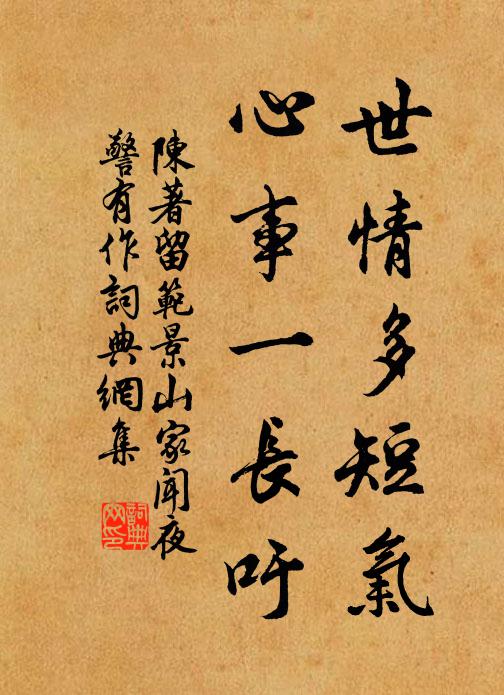 世情多短氣
心事一長吁
陳著留範景山家聞夜
警有作詞典網集
詞典網印